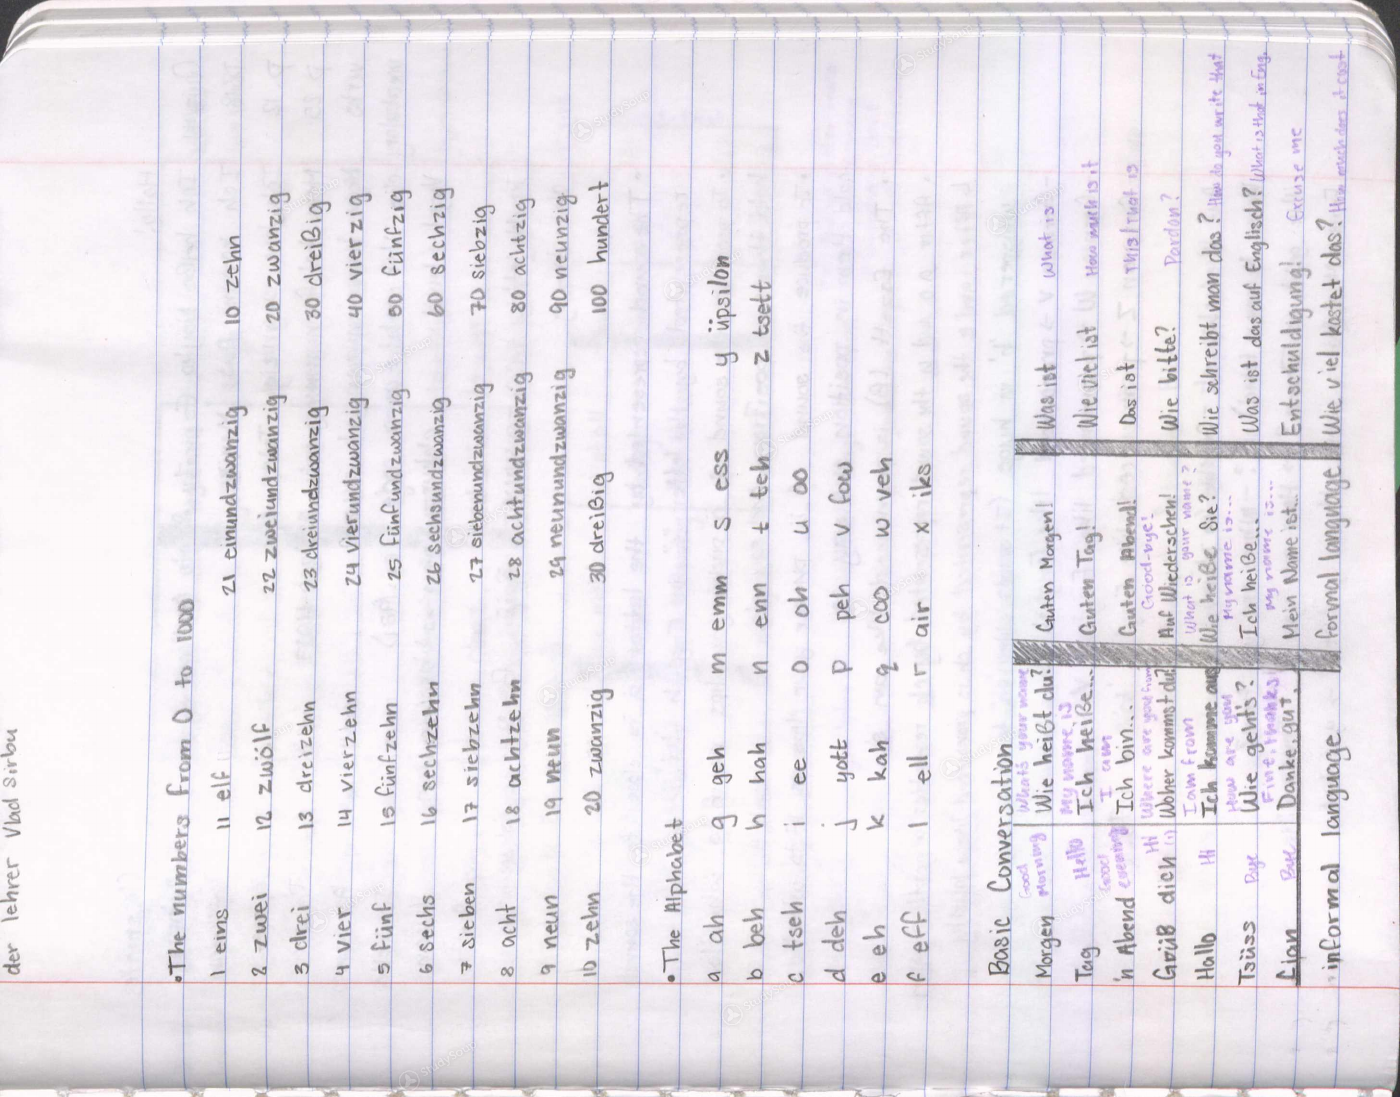 der lehrer Vlad Sirbu
• The numbers from 0 to 1000
1 eins 11 elf 21 einundzwanzig 10 zehn
2 zwei 12 zwölf 22 zweiundzwanzig 20 zwanzig
3 drei 13 dreizehn 23 dreiundzwanzig 30 dreißig
4 vier 14 vierzehn 24 vierundzwanzig 40 vierzig
5 fünf 15 fünfzehn 25 fünfundzwanzig 50 fünfzig
6 sechs 16 sechzehn 26 sechsundzwanzig 60 sechzig
7 sieben 17 siebzehn 27 siebenundzwanzig 70 siebzig
8 acht 18 achtzehn 28 achtundzwanzig 80 achtzig
9 neun 19 neun 29 neunundzwanzig 90 neunzig
10 zehn 20 zwanzig 30 dreißig 100 hundert
• The Alphabet
a ah g geh m emm s ess y üpsilon
b beh h hah n enn t teh z tsett
c tseh i ee o oh u oo
d deh j yott p peh v fow
e eh k kah q coo w veh
f eff l ell r air x iks
Basic Conversation
Good What's your name
Morgen Morning Wie heißt du? Guten Morgen! Was ist What is
My name is
Tag Hello Ich heiße... Guten Tag! Wie viel ist How much is it
Good I am
'n Abend evening Ich bin... Guten Abend! Das ist This/That is
Hi Where are you from Good-bye!
Grüß dich (!) Woher kommst du? Auf Wiedersehen! Wie bitte? Pardon?
I am from What is your name?
Hallo Hi Ich komme aus Wie heiße Sie? Wie schreibt man das? How do you write that
How are you My name is...
Tsüss Bye Wie geht's? Ich heiße... Was ist das auf Englisch? What is that in Eng.
Fine, thanks my name is...
Bye Danke, gut. Mein Name ist... Entschuldigung Excuse me
informal language formal language Wie viel kostet das? How much does it cost
StudySoup